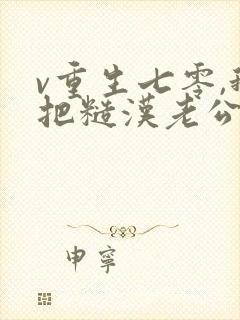 v重生七零,我
把糙漢老公
申寧